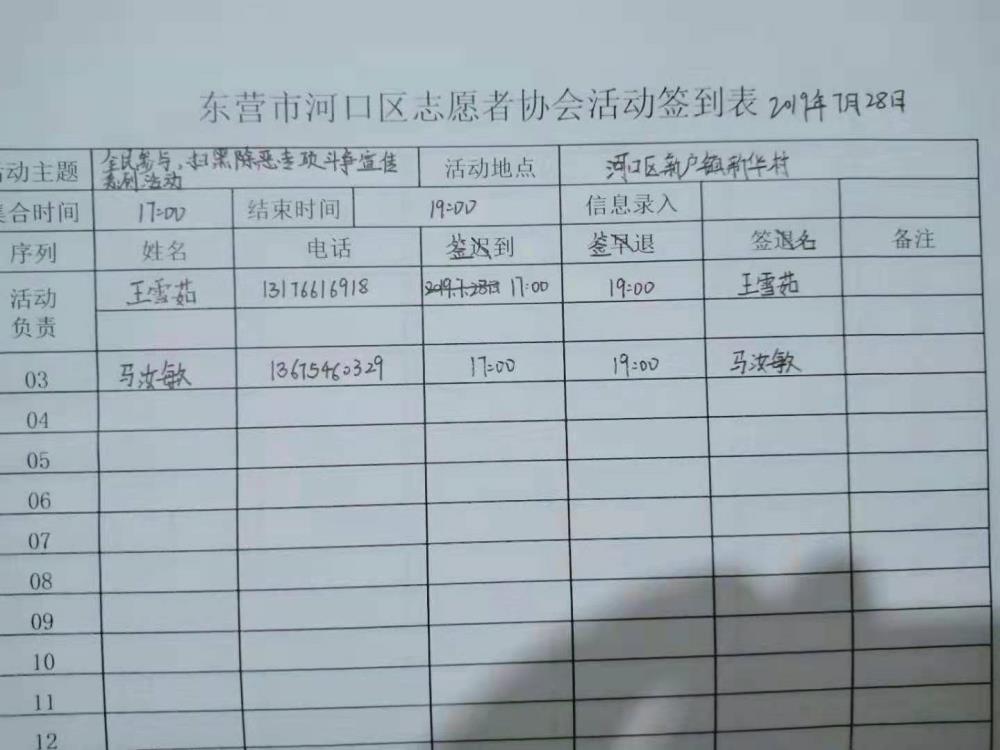 东营市河口区志愿者协会活动签到表 2019年7月28日
活动主题 全民参与、扫黑除恶专项斗争宣传系列活动 活动地点 河口区新户镇新华村
集合时间 17:00 结束时间 19:00 信息录入
序列 姓名 电话 签迟到 签早退 签退名 备注
活动负责 王雪茹 13176616918 2019.7.28日 17:00 19:00 王雪茹
03 马汝敏 13675460329 17:00 19:00 马汝敏
04
05
06
07
08
09
10
11
12